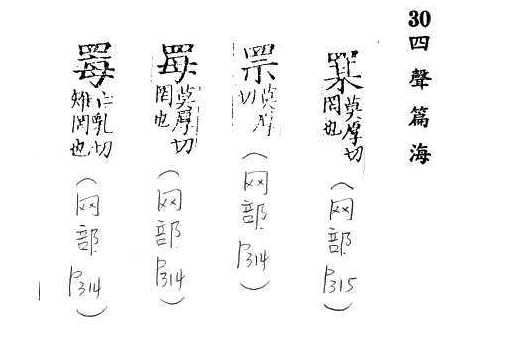 30四聲篇海
罞莫厚切罔也（网部P315）
罘莫厚切（网部P314）
莫厚切罔也（网部P314）
亡乳切雉罔也（网部P314）